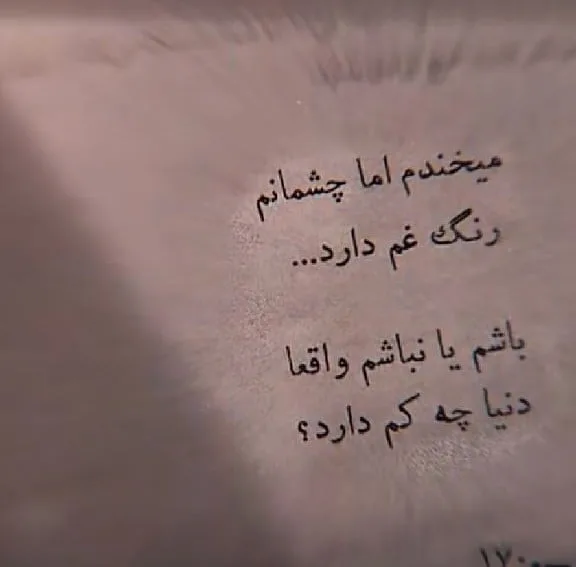 میخندم اما چشمانم
رنگ غم دارد...
باشم یا نباشم واقعا
دنیا چه کم دارد؟
۱۷۰